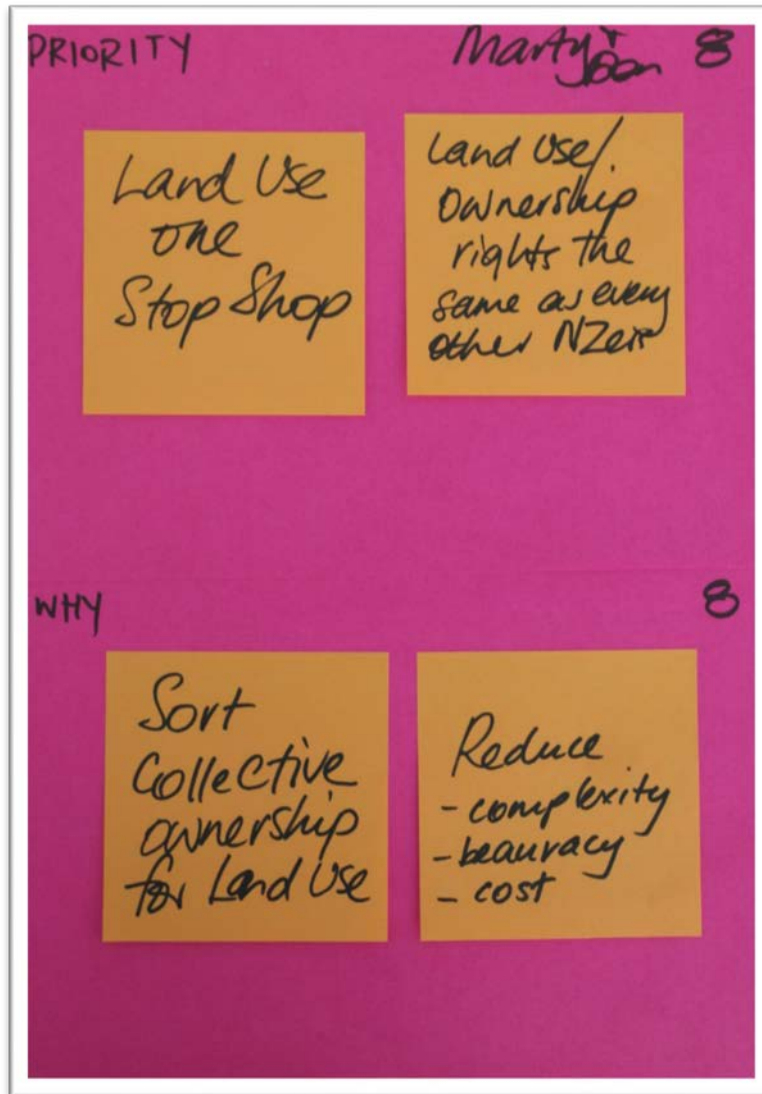 PRIORITY
Marty + 8
Land Use
one
Stop Shop
Land Use/
Ownership
rights the
same as every
other NZers
WHY
8
Sort
Collective
ownership
for Land Use
Reduce
- complexity
- beauracy
- cost